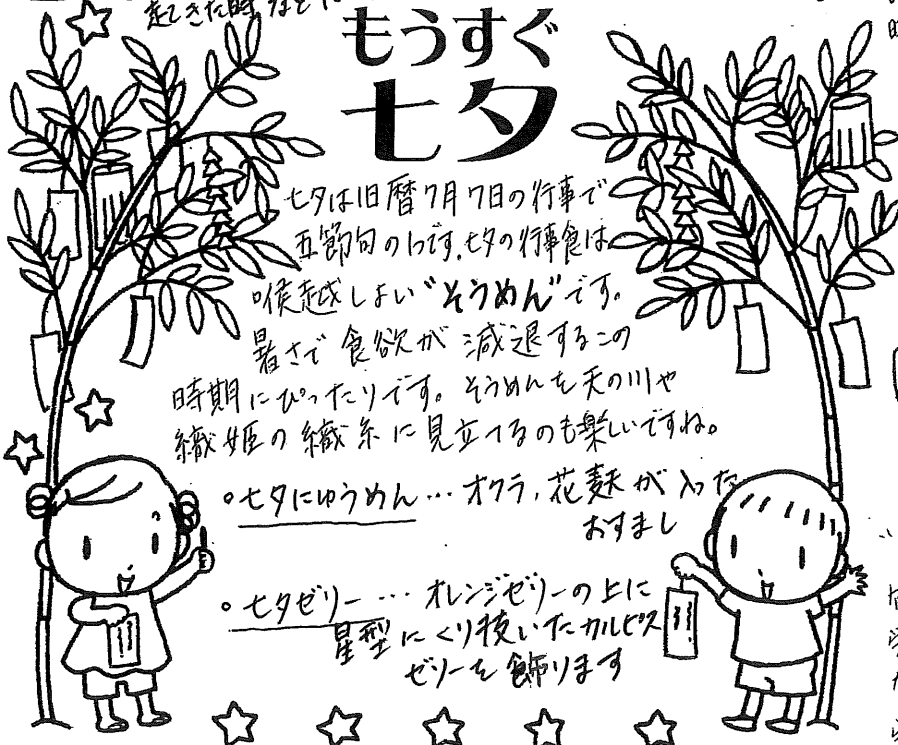 起きた時など
もうすぐ
七夕
七夕は旧暦7月7日の行事で
五節句の1つです。七夕の行事食は、
喉越しよい"そうめん"です。
暑さで食欲が減退するこの
時期にぴったりです。そうめんを天の川や
織姫の織糸に見立てるのも楽しいですね。
・七夕にゅうめん… オクラ、花麩が入った
おすまし
・七夕ゼリー… オレンジゼリーの上に
星型にくり抜いたカルピス
ゼリーを飾ります